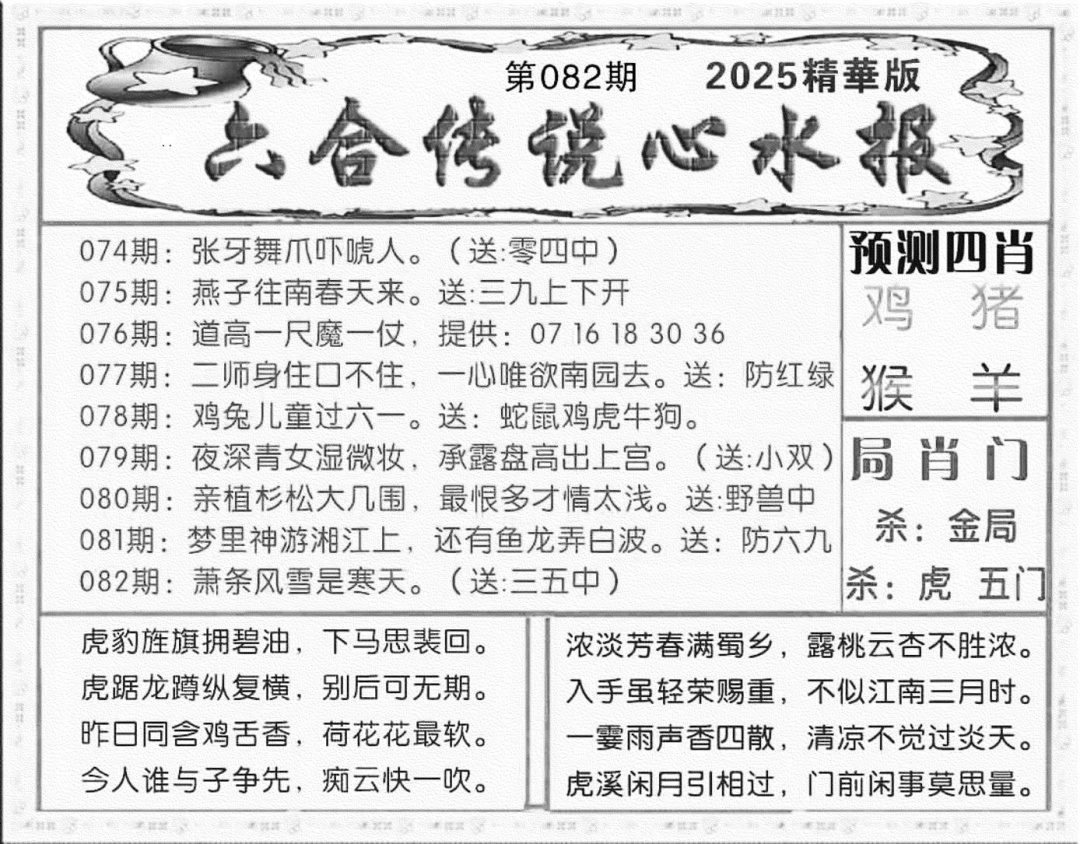 第082期 2025精華版
六合传说心水报
074期：张牙舞爪吓唬人。（送:零四中）
075期：燕子往南春天来。送:三九上下开
076期：道高一尺魔一仗，提供：07 16 18 30 36
077期：二师身住口不住，一心唯欲南园去。送：防红绿
078期：鸡兔儿童过六一。送：蛇鼠鸡虎牛狗。
079期：夜深青女湿微妆，承露盘高出上宫。（送:小双）
080期：亲植杉松大几围，最恨多才情太浅。送:野兽中
081期：梦里神游湘江上，还有鱼龙弄白波。送：防六九
082期：萧条风雪是寒天。（送:三五中）
预测四肖
鸡 猪
猴 羊
局肖门
杀：金局
杀：虎 五门
虎豹旌旗拥碧油，下马思裴回。
虎踞龙蹲纵复横，别后可无期。
昨日同含鸡舌香，荷花花最软。
今人谁与子争先，痴云快一吹。
浓淡芳春满蜀乡，露桃云杏不胜浓。
入手虽轻荣赐重，不似江南三月时。
一霎雨声香四散，清凉不觉过炎天。
虎溪闲月引相过，门前闲事莫思量。